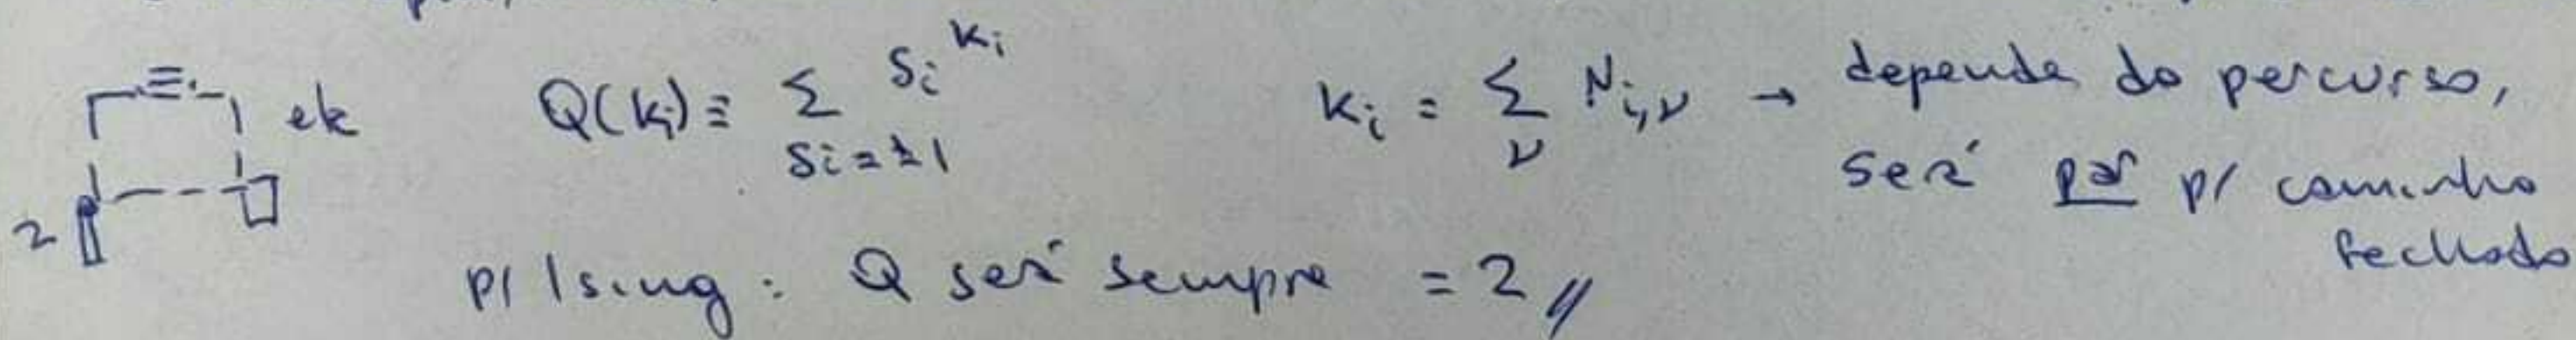 ek
Q(ki) ≡ Σ Si^ki
Si=±1
ki = Σ Ni,ν → depende do percurso,
ν
será par p/ caminho
fechado
2
p/ Ising: Q será sempre = 2 //